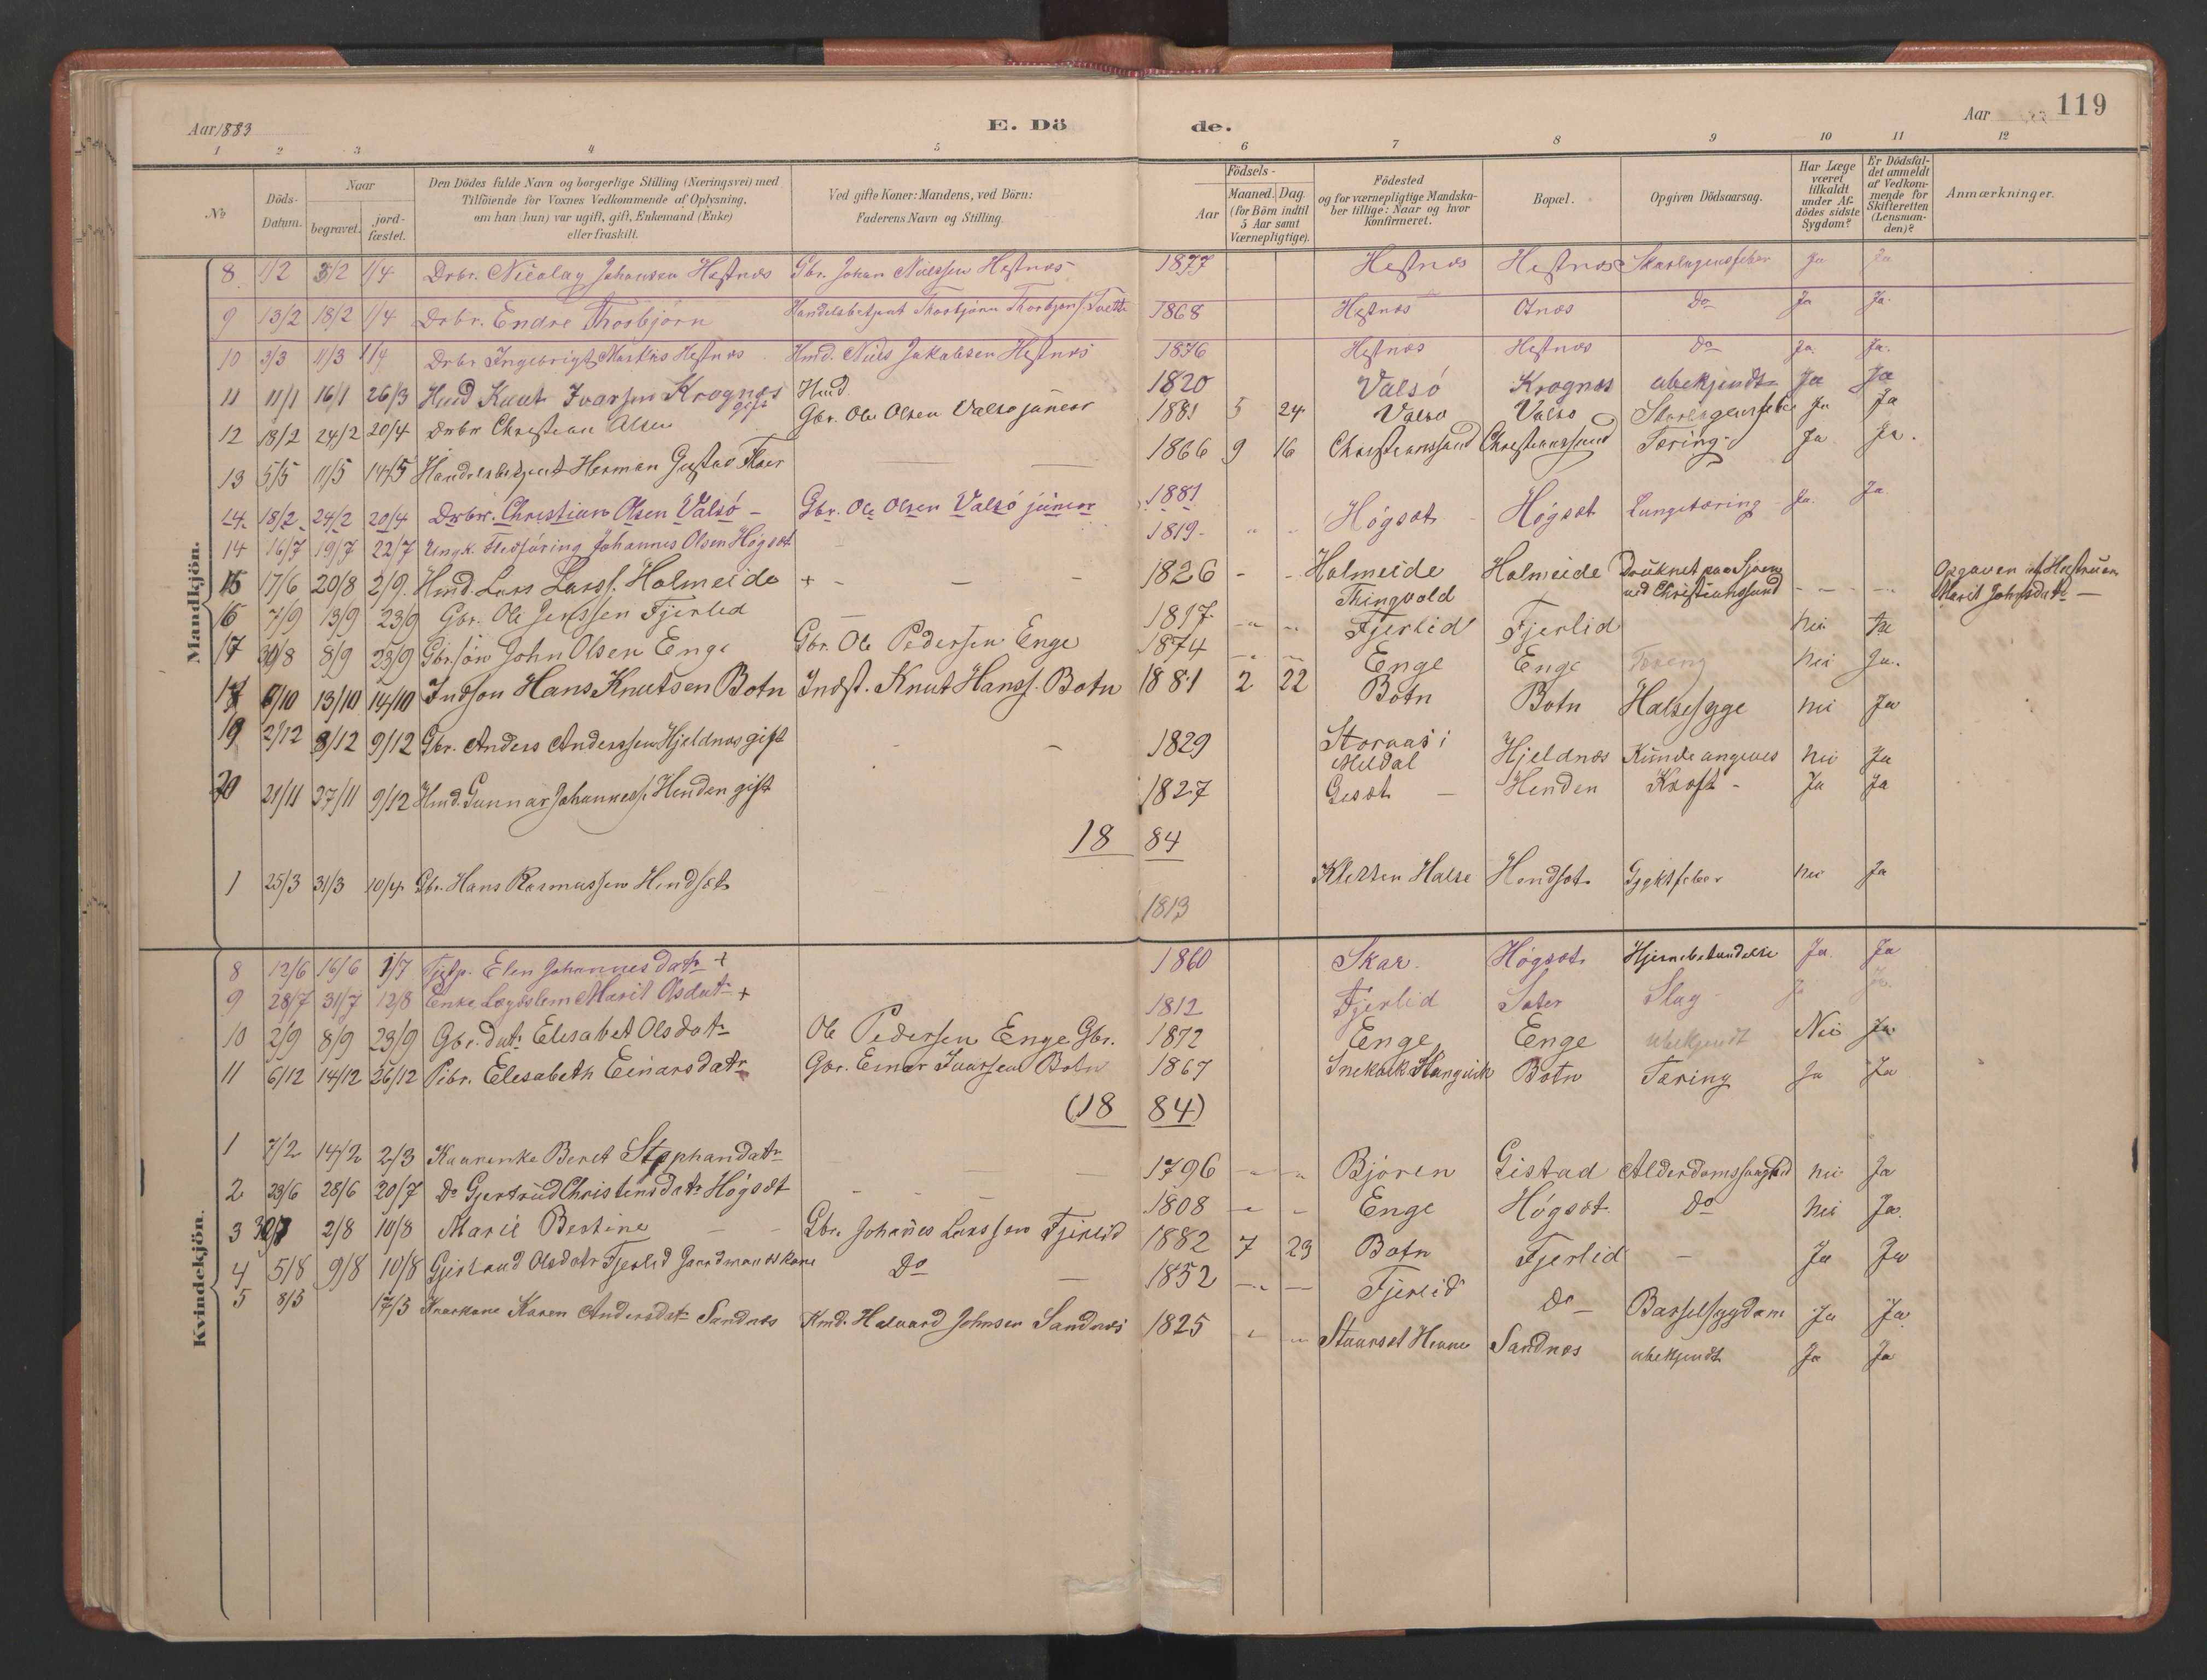 Aar 1883 E. Dö de. Aar 119
1 2 3 4 5 6 7 8 9 10 11 12
No
Döds-
Datum.
Naar
begravet.
jord-
fæstet.
Den Dödes fulde Navn og borgerlige Stilling (Næringsvei) med
Tilföiende for Voxnes Vedkommende af Oplysning,
om han (hun) var ugift, gift, Enkemand (Enke)
eller fraskilt.
Ved gifte Koner: Mandens, ved Börn:
Faderens Navn og Stilling.
Födsels-
Aar
Maaned. Dag.
(for Börn indtil
5 Aar samt
Værnepligtige).
Födested
og for værnepligtige Mandska-
ber tillige: Naar og hvor
konfirmeret.
Bopæl.
Opgiven Dödsaarsag.
Har Læge
været
tilkaldt
under Af-
dödes sidste
Sygdom?
Er Dödsfal-
det anmeldt
af Vedkom-
mende for
Skifteretten
(Lensman-
den)?
Anmærkninger.
Mandkjön.
8 1/2 3/2 1/4 Drbr. Nicolay Johansen Hestnæs Gbr. Johan Nielssen Hestnæs 1877 Hestnæs Hestnæs Skarlagensfeber Ja Ja
9 13/2 18/2 1/4 Drbr. Endre Thorbjörn Handelsbetjent Thorbjörn 1868 Hestnæs Otnæs Do Ja Ja.
10 3/3 11/3 1/4 Drbr Ingebrigt Martius Hestnæs Hmd. Niels Jakobsen Hestnæs 1876 Hestnæs Hestnæs Do Ja. Ja.
11 11/1 16/1 26/3 Hmd Knut Ivarssen Krognæs gift Hmd 1820 Valsö Krognæs ubekjendt Ja Ja
12 18/2 24/2 20/4 Drbr Christian Olsen Gbr. Ole Olsen Valsö junior 1881 5 24 Valsö Valsö Skarlagensfeber Ja Ja
13 5/5 11/5 14/5 Handelsbetjent Herman Gustav Floer 1866 9 16 Christianssund Christianssund Tæring Ja Ja.
14. 18/2 24/2 20/4 Drbr. Christian Olsen Valsö Gbr. Ole Olsen Valsö junior 1881
14 16/7 19/7 22/7 Ungk. Flesföring Johannes Olsen Högsæt 1819 Högsæt Högsæt Lungetæring Ja. Ja.
15 17/6 20/8 2/9. Hmd. Lars Larss. Halmeide + 1826 Halmeide Halmeide Druknet paa Sjøen
Thingvold ved Christianssund
Opgaven af Hustruen
Marit Johnsdatr
16 7/9 13/9 23/9 Gbr. Ole Jenssen Fjerlid 1817 Fjerlid Fjerlid Nei Ja
17 30/8 8/9 23/9 Gbr.sön John Olsen Enge Gbr. Ole Pedersen Enge 1874 Enge Enge Tæring Nei Ja.
17 6/10 13/10 14/10 Indson Hans Knutsen Botn Indst. Knut Hanss. Botn 1881 2 22 Botn Botn Halsesyge Nei Ja
19 2/12 8/12 9/12 Gbr. Anders Anderssen Hjeldnæs gift 1829 Storaas i
Meldal Hjeldnæs Kunde angives Nei Ja
20 21/11 27/11 9/12 Hmd. Gunnar Johanness. Henden gift 1827 Gesæt Henden Kræft Ja Ja
1884
1 25/3 31/3 10/4 Gbr. Hans Rasmussen Hendset 1813 Kletten Halse Hendset Gigtfeber Nei Ja
Kvindekjön.
8 12/6 16/6 1/7 Elen Johannesdatr + 1860 Skar. Högsæt Hjernebetændelse Ja Ja
9 28/7 31/7 12/8 Enke Lægdslem Marit Olsdatr + 1812 Fjerlid Sæter Slag Ja Ja.
10 2/9 8/9 23/9 Gbr. datr Elisabet Olsdatr Ole Pedersen Enge Gbr. 1872 Enge Enge ubekjendt Nei Ja
11 6/12 14/12 26/12 Pibr. Elesabeth Einarsdatr Gbr. Einar Ivarsen Botn 1867 Stangvik Botn Tæring Ja Ja
(1884)
1 7/2 14/2 2/3 Kaarenke Beret Stephandatr 1796 Björen Gistad Alderdomssvaghed Nei Ja
2 23/6 28/6 20/7 Do Gjertrud Christensdatr Högsæt 1808 Enge Högsæt Do Nei Ja.
3 30/7 2/8 10/8 Marie Bestine Gbr. Johanes Larssen Fjerlid 1882 7 23 Botn Fjerlid Ja Ja
4 5/8 9/8 10/8 Gjertrud Olsdatr Fjerlid Gaardmandskone Do 1852 Fjerlid Do Barselsygdom Ja Ja
5 8/5 17/5 Karen Andersdatr Sandnæs Kmd. Halvard Johnsen Sandnæs 1825 Sandnæs ubekjendt Ja Ja